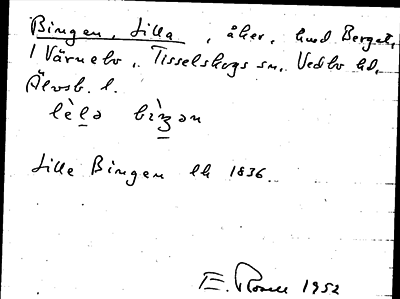 Bingen, Lilla, åker, hmd Berget,
1 Värnebo, Tisselskogs sn, Vedbo hd,
Älvsb. l.
lèlə bìŋən
Lilla Bingen lh 1836
E. 1952